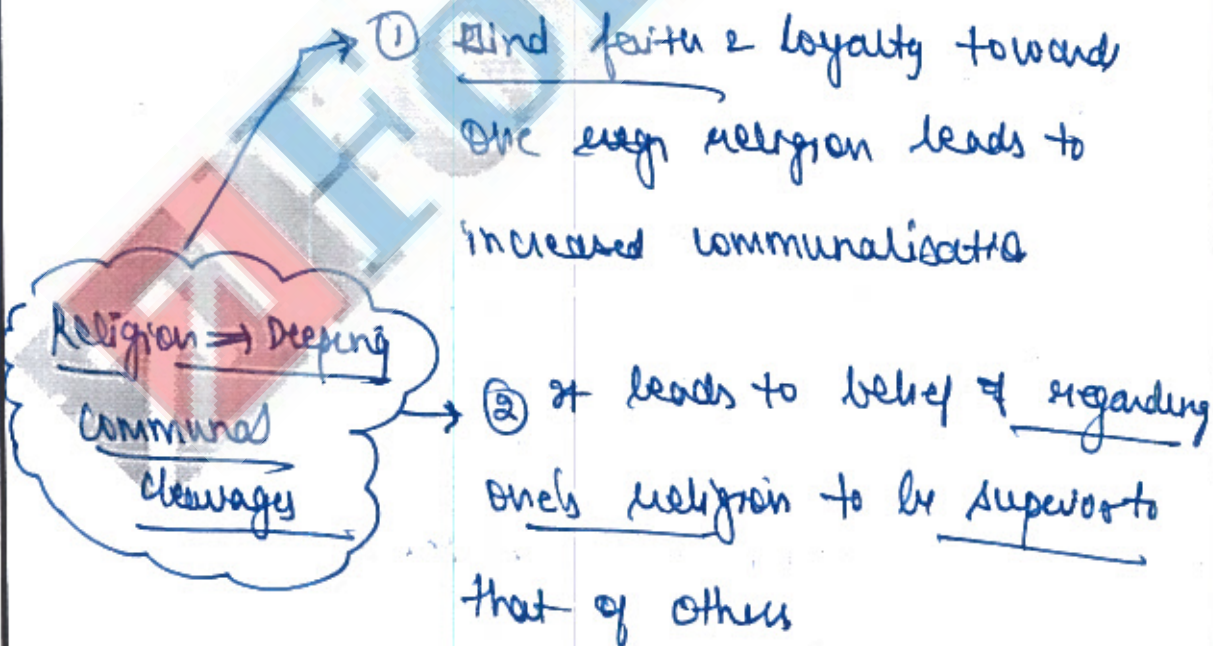 ① Blind faith & loyalty towards
one religion leads to
increased communalisatio
Religion ⇒ Deeping
Communal
cleavages
② It leads to belief of regarding
one's religion to be superior to
that of others